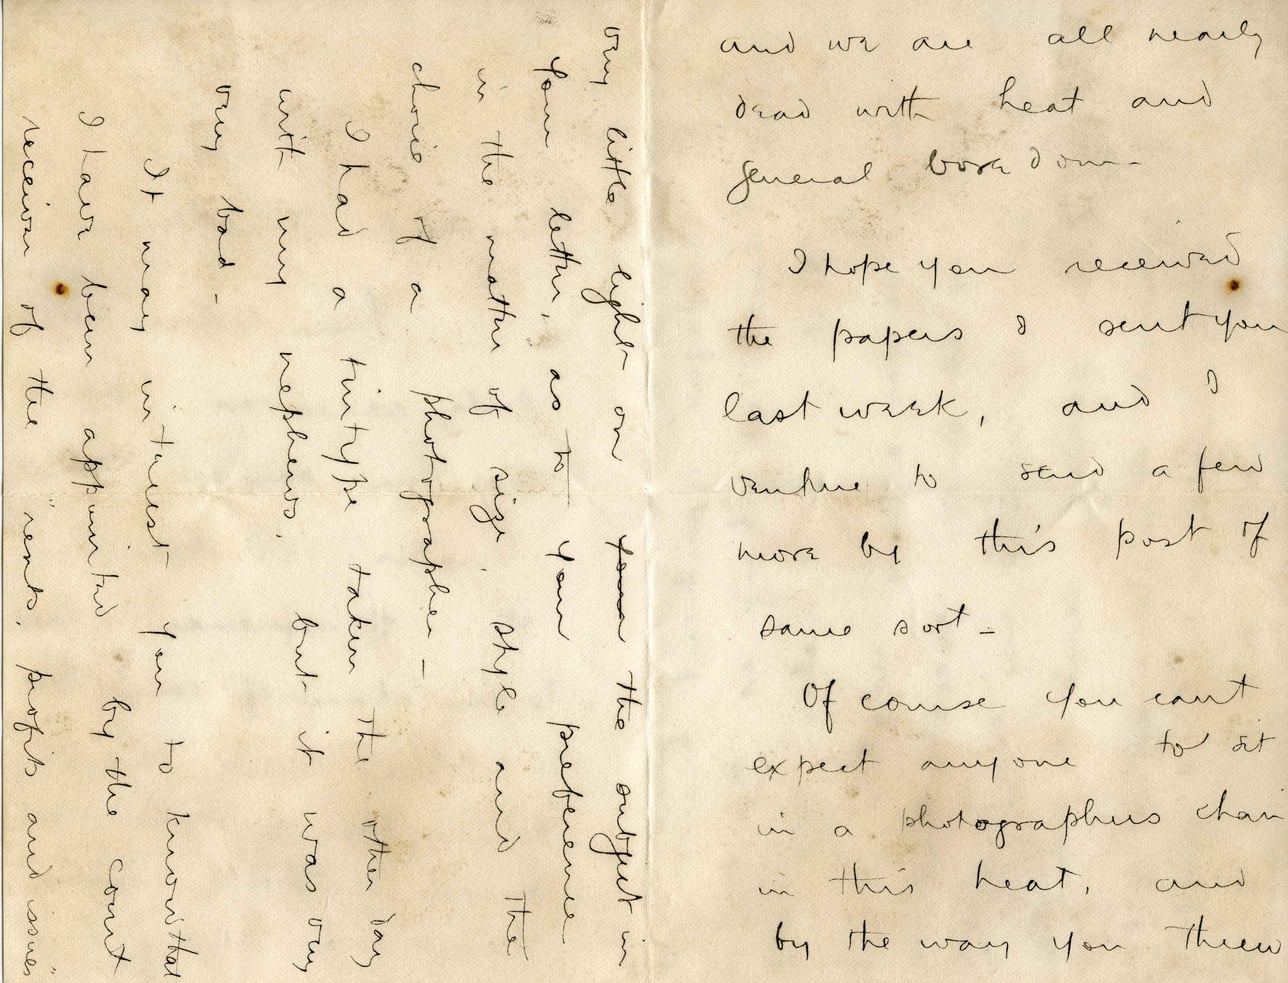 and we are all nearly
dead with heat and
general boredom-
I hope you received
the papers I sent you
last week, and I
venture to send a few
more by this post of
same sort-
Of course you can't
expect anyone to sit
in a photographers chair
in this heat, and
by the way you threw
very little light on your the subject in
your letter, as to your preference
in the matter of size, style and the
choice of a photographer-
I had a tintype taken the other day
with my nephews, but it was very
very bad-
It may interest you to know that
I have been appointed by the court
receiver of the "rents, profits and issues"